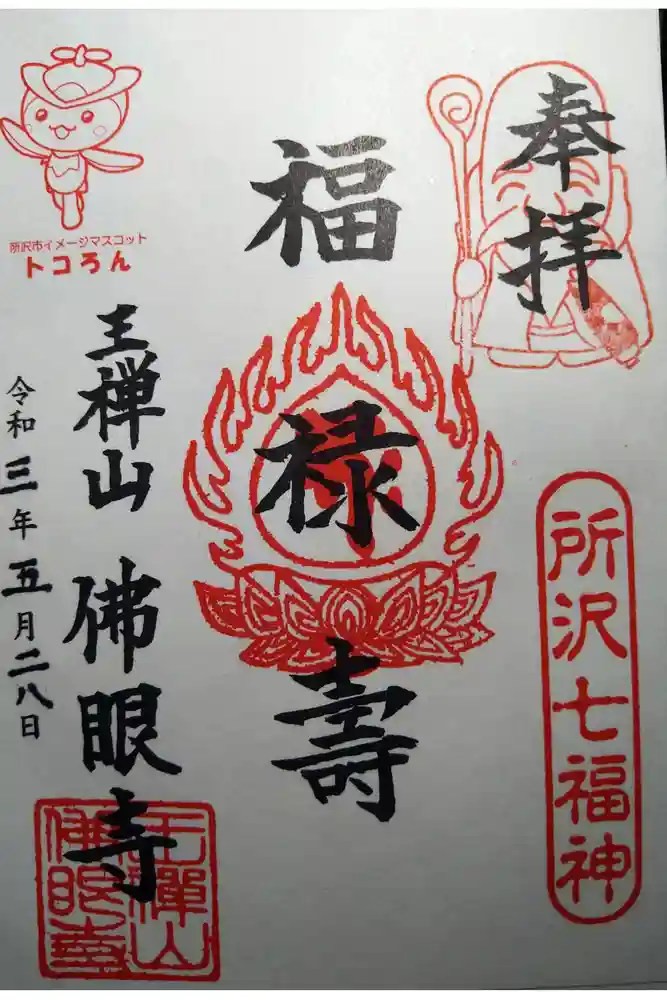 奉拝
所沢七福神
福
禄
壽
所沢市イメージマスコット
トコろん
王禅山
佛眼寺
令和三年五月二八日
王禪山
佛眼寺